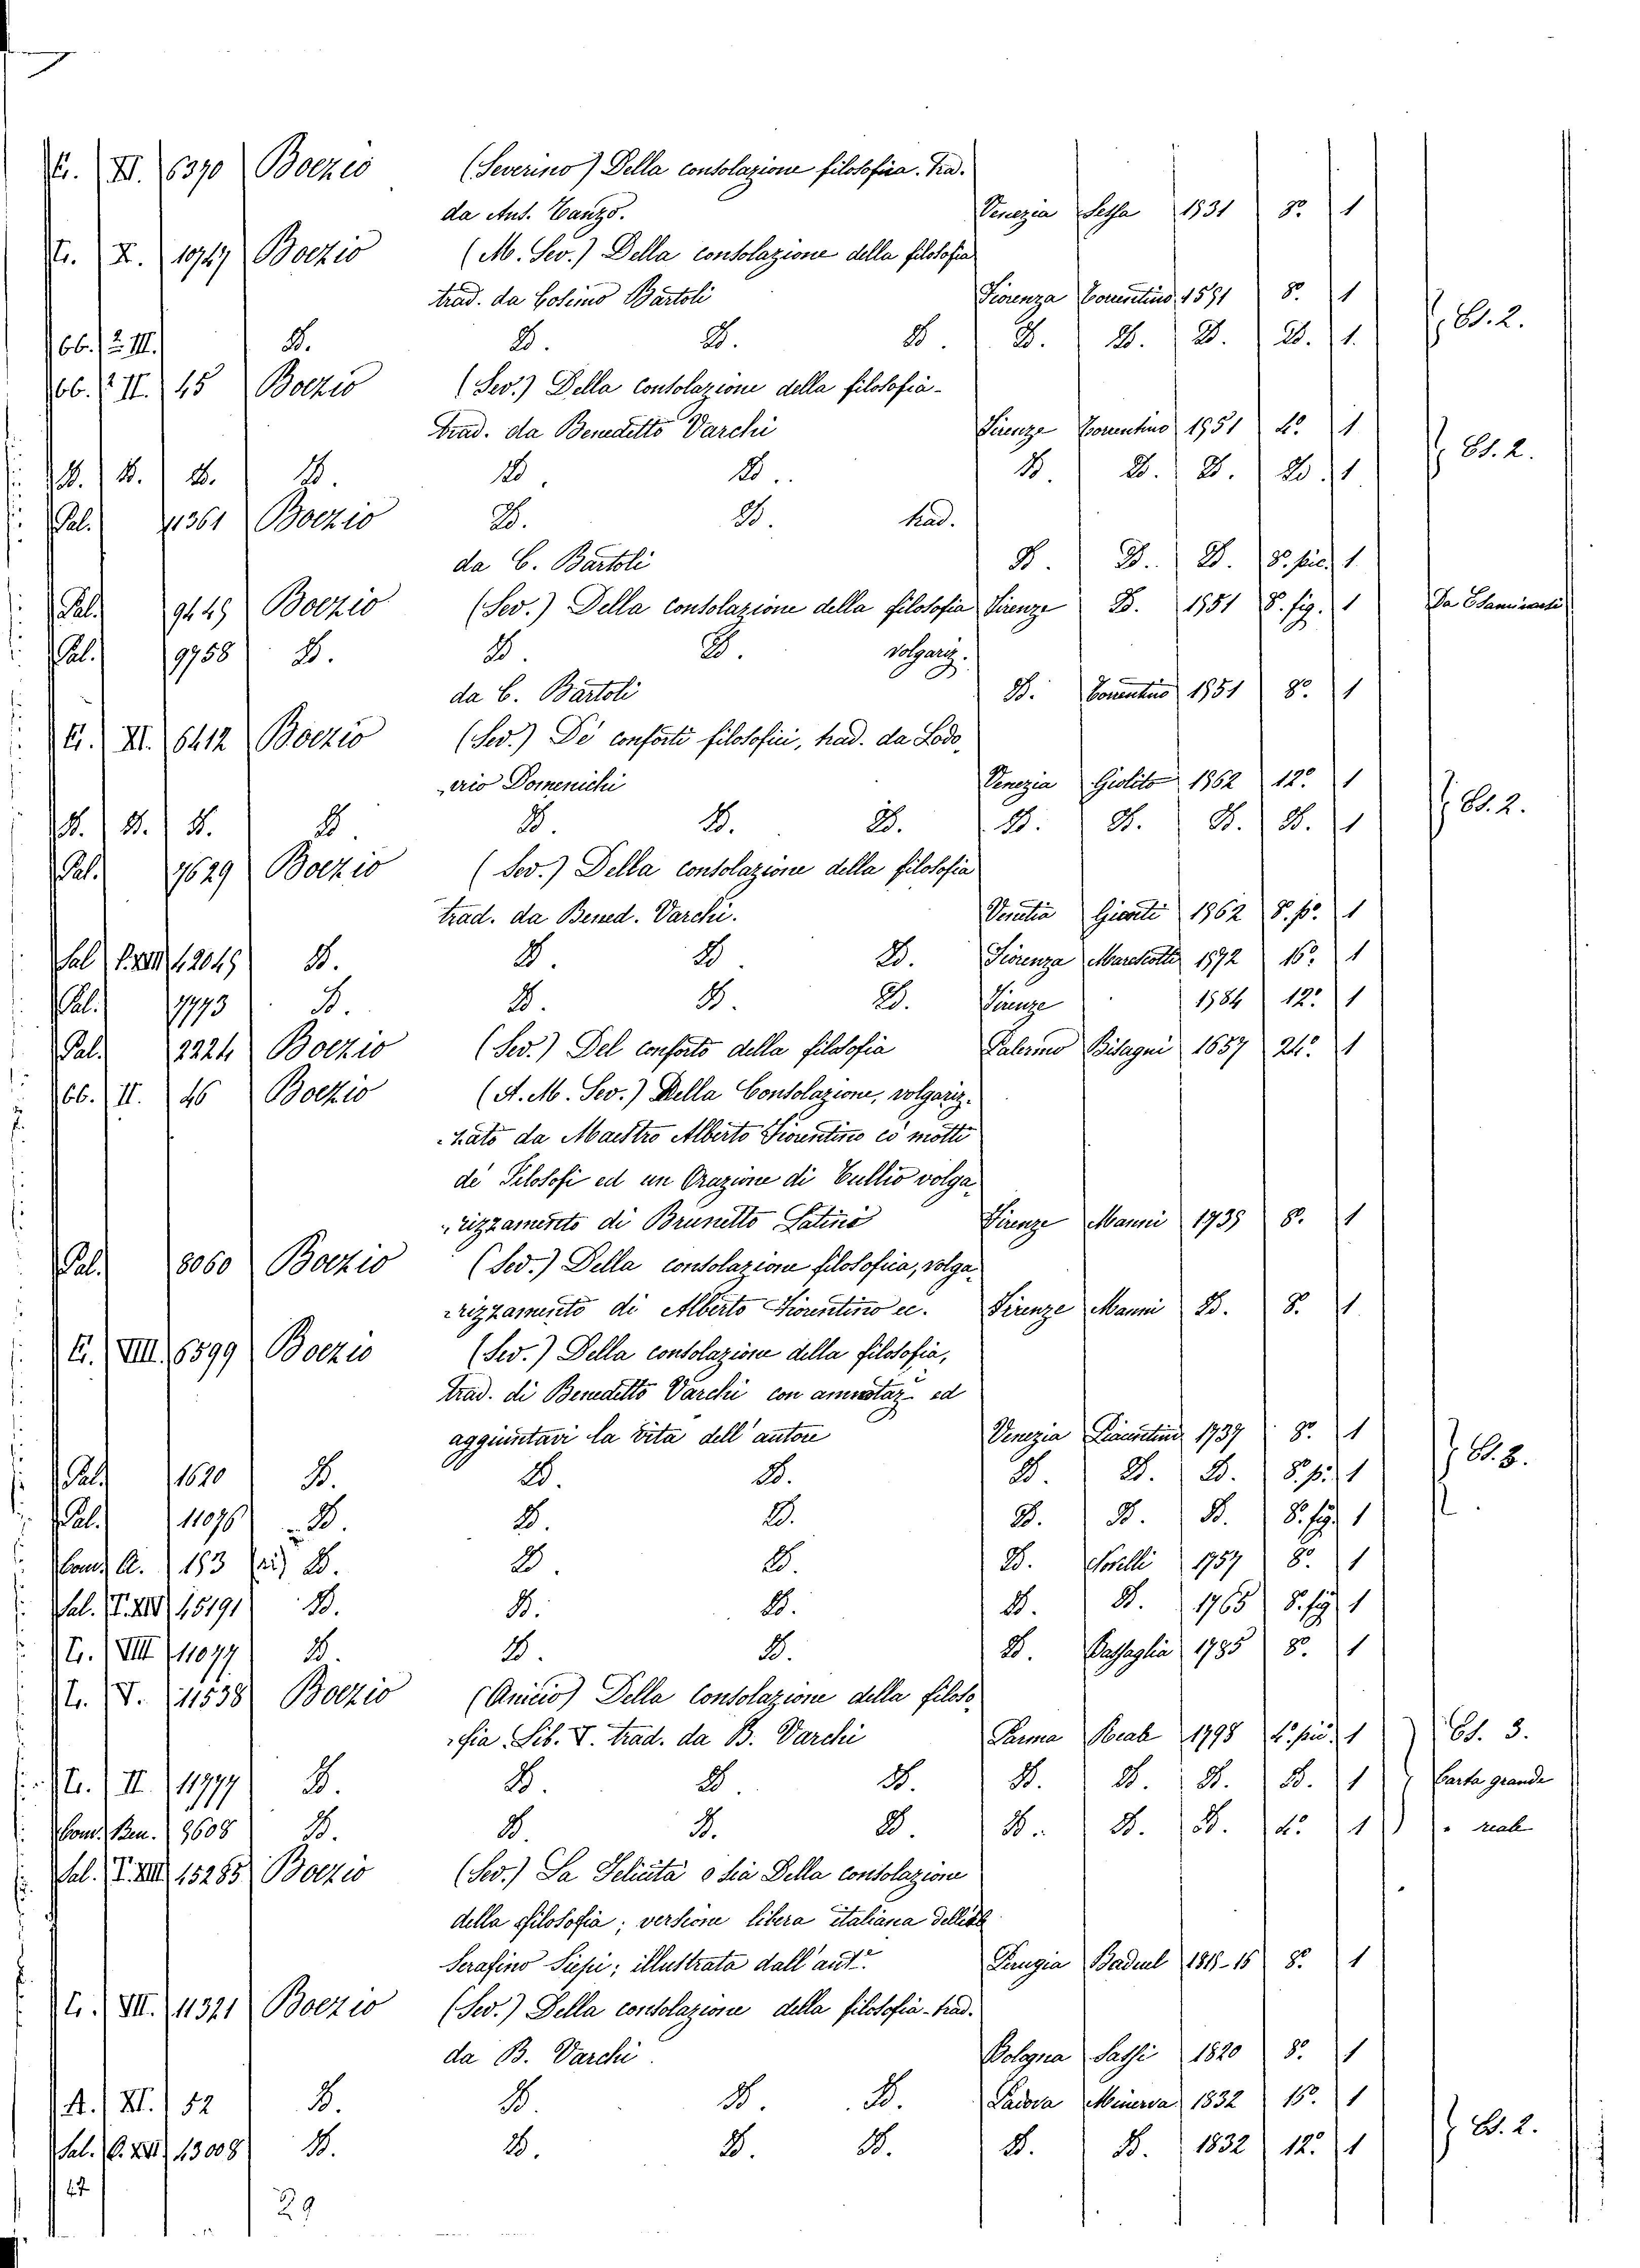 C. XI. 6370 Boezio (Severino) Della consolazione filosofica. Tra.
da Ant. Tanzo. Venezia Sessa 1531 8.° 1
C. X. 10747 Boezio (M. Sev.) Della consolazione della filosofia
trad. da Cosimo Bartoli Fiorenza Torrentino 1551 8.° 1
66. 2 III. D. D. D. D. D. D. D. D. 1. Es. 2.
66. 2 II. 45 Boezio (Sev.) Della consolazione della filosofia-
trad. da Benedetto Varchi Firenze Torrentino 1551 4.° 1
D. D. D. D. D. D. D. D. D. D. 1 Es. 2.
Pal. 11361 Boezio D. D. trad.
da C. Bartoli D. D. D. 8.° pic. 1
Pal. 9449 Boezio (Sev.) Della consolazione della filosofia Firenze D. 1551 8. fig. 1 Da Esaminarsi
Pal. 9758 D. D. D. volgariz.
da C. Bartoli D. Torrentino 1551 8.° 1
C. XI. 6412 Boezio (Sev.) De' conforti filosofici, trad. da Lodo-
-vico Domenichi Venezia Giolito 1562 12.° 1
D. D. D. D. D. D. D. D. D. D. D. 1 Es. 2.
Pal. 7629 Boezio (Sev.) Della consolazione della filosofia
trad. da Bened. Varchi. Venetia Giunti 1562 8. p.° 1
Sal. P. XIII. 12049 D. D. D. D. Fiorenza Marescotti 1572 16.° 1
Pal. 7773 D. D. D. D. Firenze 1584 12.° 1
Pal. 2224 Boezio (Sev.) Del conforto della filosofia Palermo Bisagni 1657 24.° 1
66. II. 46 Boezio (A. M. Sev.) Della Consolazione, volgariz-
-zato da Maestro Alberto Fiorentino co' motti
de' Filosofi ed un Orazione di Tullio volga-
-rizzamento di Brunetto Latini Firenze Manni 1735 8. 1
Pal. 8060 Boezio (Sev.) Della consolazione filosofica, volga-
-rizzamento di Alberto Fiorentino ec. Firenze Manni D. 8. 1
C. VIII. 6599 Boezio (Sev.) Della consolazione della filosofia,
trad. di Benedetto Varchi con annotaz. ed
aggiuntavi la vita dell'autore Venezia Piacentini 1737 8.° 1
Pal. 1620 D. D. D. D. D. D. 8. p. 1 Es. 3.
Pal. 11076 D. D. D. D. D. D. 8. fig. 1
Com. A. 183 D. D. D. D. Novelli 1757 8.° 1
Sal. T. XIV 15191 D. D. D. D. D. 1765 8. fig. 1
C. VIII 11077 D. D. D. D. Bassaglia 1785 8.° 1
C. V. 11538 Boezio (Anicio) Della consolazione della filoso-
-fia. Lib. V. trad. da B. Varchi Parma Reale 1798 4.° pic. 1 Es. 3.
C. II. 11777 D. D. D. D. D. D. D. D. 1 Carta grande
Com. Ben. 9608 D. D. D. D. D. D. D. 4.° 1 " reale
Sal. T. XIII 15285 Boezio (Sev.) La Felicità o sia Della consolazione
della filosofia; versione libera italiana
Serafino Siepi; illustrata dall'aut.e Perugia Baduel 1815-16 8.° 1
C. VII. 11321 Boezio (Sev.) Della consolazione della filosofia- trad.
da B. Varchi. Bologna Sassi 1820 8.° 1
A. XI. 52 D. D. D. D. Padova Minerva 1832 16.° 1
Sal. P. XVI 13008 D. D. D. D. D. D. 1832 12.° 1 Es. 2.
47
29